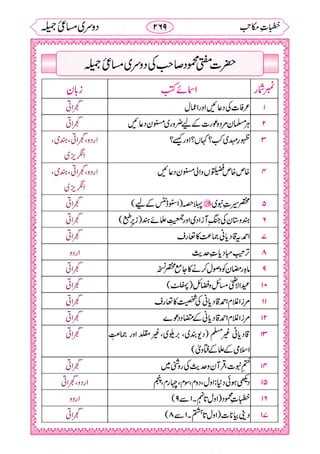 خطباتِ مکاتب ۲۶۹ دوسری مساعیٔ جمیلہ
حضرت مفتی محمود صاحب کی دوسری مساعیٔ جمیلہ
نمبر شمار اسمائے کتب زبان
۱ عرفات کی دعائیں اور اعمال گجراتی
۲ ہر مسلمان مرد وعورت کے لیے ضروری مسنون دعائیں گجراتی
۳ ظہورِ مہدی کب؟ کہاں؟ اور کیسے؟ اردو، گجراتی، ہندی،
انگریزی
۴ خاص خاص فضیلتوں والی مسنون دعائیں اردو، گجراتی، ہندی،
انگریزی
۵ مختصر سیرتِ نبوی ﷺ پہلا حصہ (اسٹوڈنٹس کے لیے) گجراتی
۶ ہندوستان کی جنگِ آزادی اور جمعیت علمائے ہند (زیرِ طبع) گجراتی
۷ احمدیہ قادیانی جماعت کا تعارف گجراتی
۸ ترتیبِ مبادیاتِ حدیث اردو
۹ ماہِ رمضان کو وصول کرنے کا جامع مختصر نسخہ گجراتی
۱۰ عید الاضحی مسائل وفضائل (پمفلٹ) گجراتی
۱۱ مرزا غلام احمد قادیانی کی شخصیت کا تعارف گجراتی
۱۲ مرزا غلام احمد قادیانی کے متضاد دعوے گجراتی
۱۳ قادیانی غیر مسلم (دیوبندی، بریلوی، غیر مقلد اور جماعتِ
اسلامی کے علما کے فتاوی) گجراتی
۱۴ ختمِ نبوت، قرآن وحدیث کی روشنی میں گجراتی
۱۵ دیکھی ہوئی دنیا: اول، دوم، سوم، چہارم، پنجم اردو، گجراتی
۱۶ خطباتِ محمود (اول تا نہم۔ ۱ سے ۹) اردو، گجراتی
۱۷ دینی بیانات (اول تا ہشتم۔ ۱ سے ۸) گجراتی